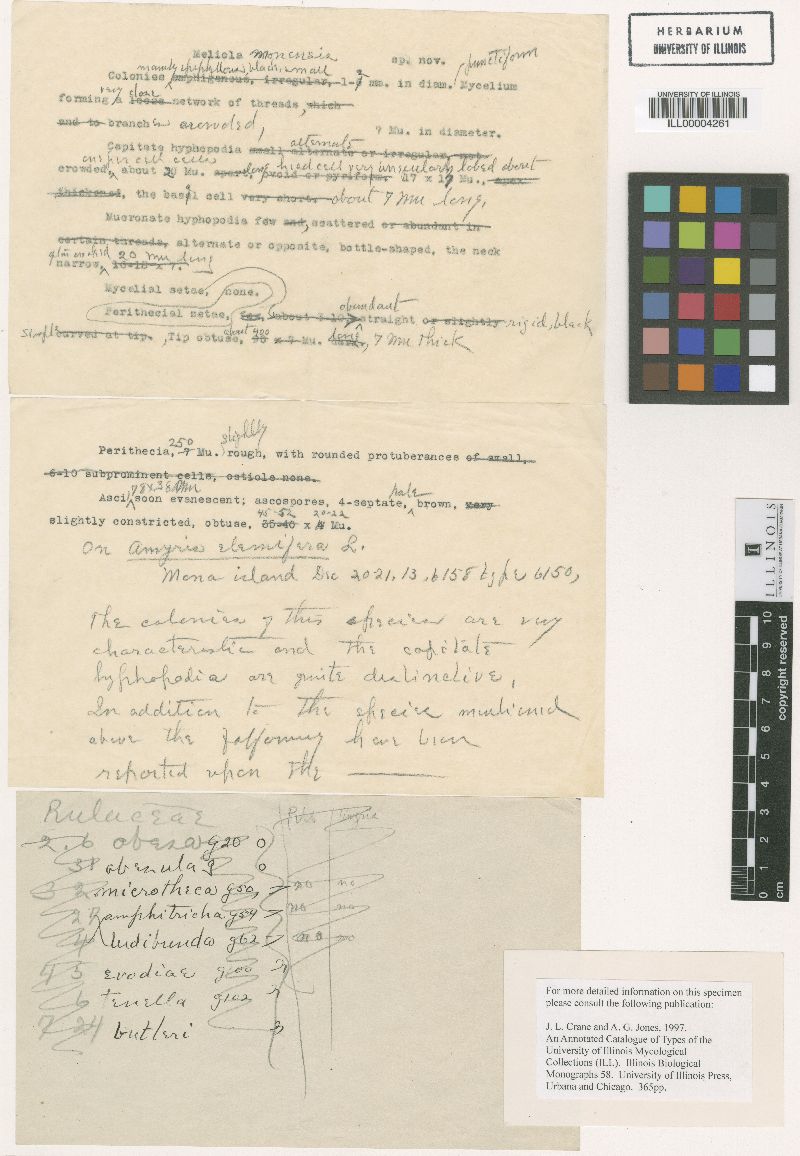 Meliola monensis sp. nov.
mainly epiphyllous, black, small punctiform
Colonies amphigenous, irregular, 1-3 mm. in diam. Mycelium
very close
forming a loose network of threads, which
and to branches crowded, 7 Mu. in diameter.
alternate
Capitate hyphopodia small alternate or irregular, not
crowded, about 20 Mu. apart, long, head cell very irregularly lobed about
ovoid or pyriform, 17 x 17 Mu., apex
thickened, the basal cell very short, about 7 mu long,
Mucronate hyphopodia few and, scattered or abundant in
certain threads, alternate or opposite, bottle-shaped, the neck
narrow, 20 mu long
Mycelial setae, none.
abundant
Perithecial setae, few, about 5-10, straight or slightly rigid, black
simple curved at tip. , Tip obtuse, about 400 x 7 Mu. long, 7 mu thick
250 slightly
Perithecia, 7 Mu. rough, with rounded protuberances of small,
6-10 subprominent cells, ostiole none.
pale
Asci soon evanescent; ascospores, 4-septate, brown, very
45-52 20-22
slightly constricted, obtuse, 35-40 x 4 Mu.
On Amyris elemifera L.
Mona island Dec 20 21, 13, 6158 type 6150,
The colonies of this species are very
characteristic and the capitate
hyphopodia are quite distinctive,
In addition to the species mentioned
above the following have been
reported upon the
Rutaceae
2. 6 obesa g20 0
38 obesula g 0
3 2 microtheca g50, no no
2 amphitricha g54 no no
4 ludibunda g62 no no
4 5 evodiae g100
6 tenella g102
7 24 butleri
HERBARIUM
UNIVERSITY OF ILLINOIS
UNIVERSITY OF ILLINOIS
ILL00004261
ILLINOIS
copyright reserved
0 1 2 3 4 5 6 7 8 9 10
cm
For more detailed information on this specimen
please consult the following publication:
J. L. Crane and A. G. Jones. 1997.
An Annotated Catalogue of Types of the
University of Illinois Mycological
Collections (ILL). Illinois Biological
Monographs 58. University of Illinois Press,
Urbana and Chicago. 365pp.